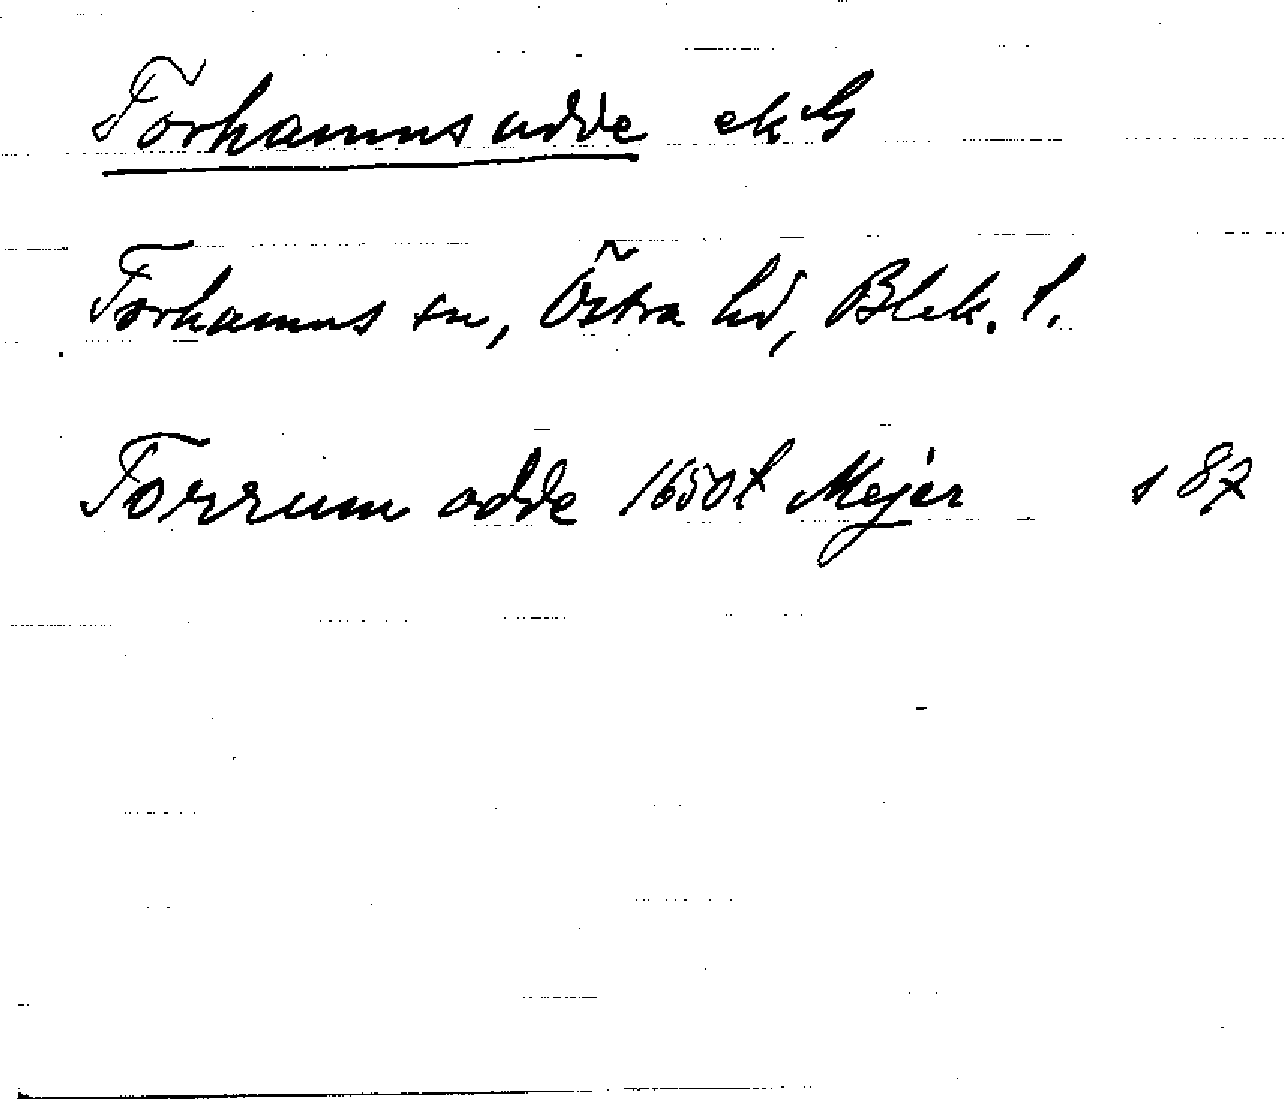 Torhamnsudde ekbl
Torhamns sn, Östra hd, Blek. l.
Torrum odde 1650t Mejer s 87